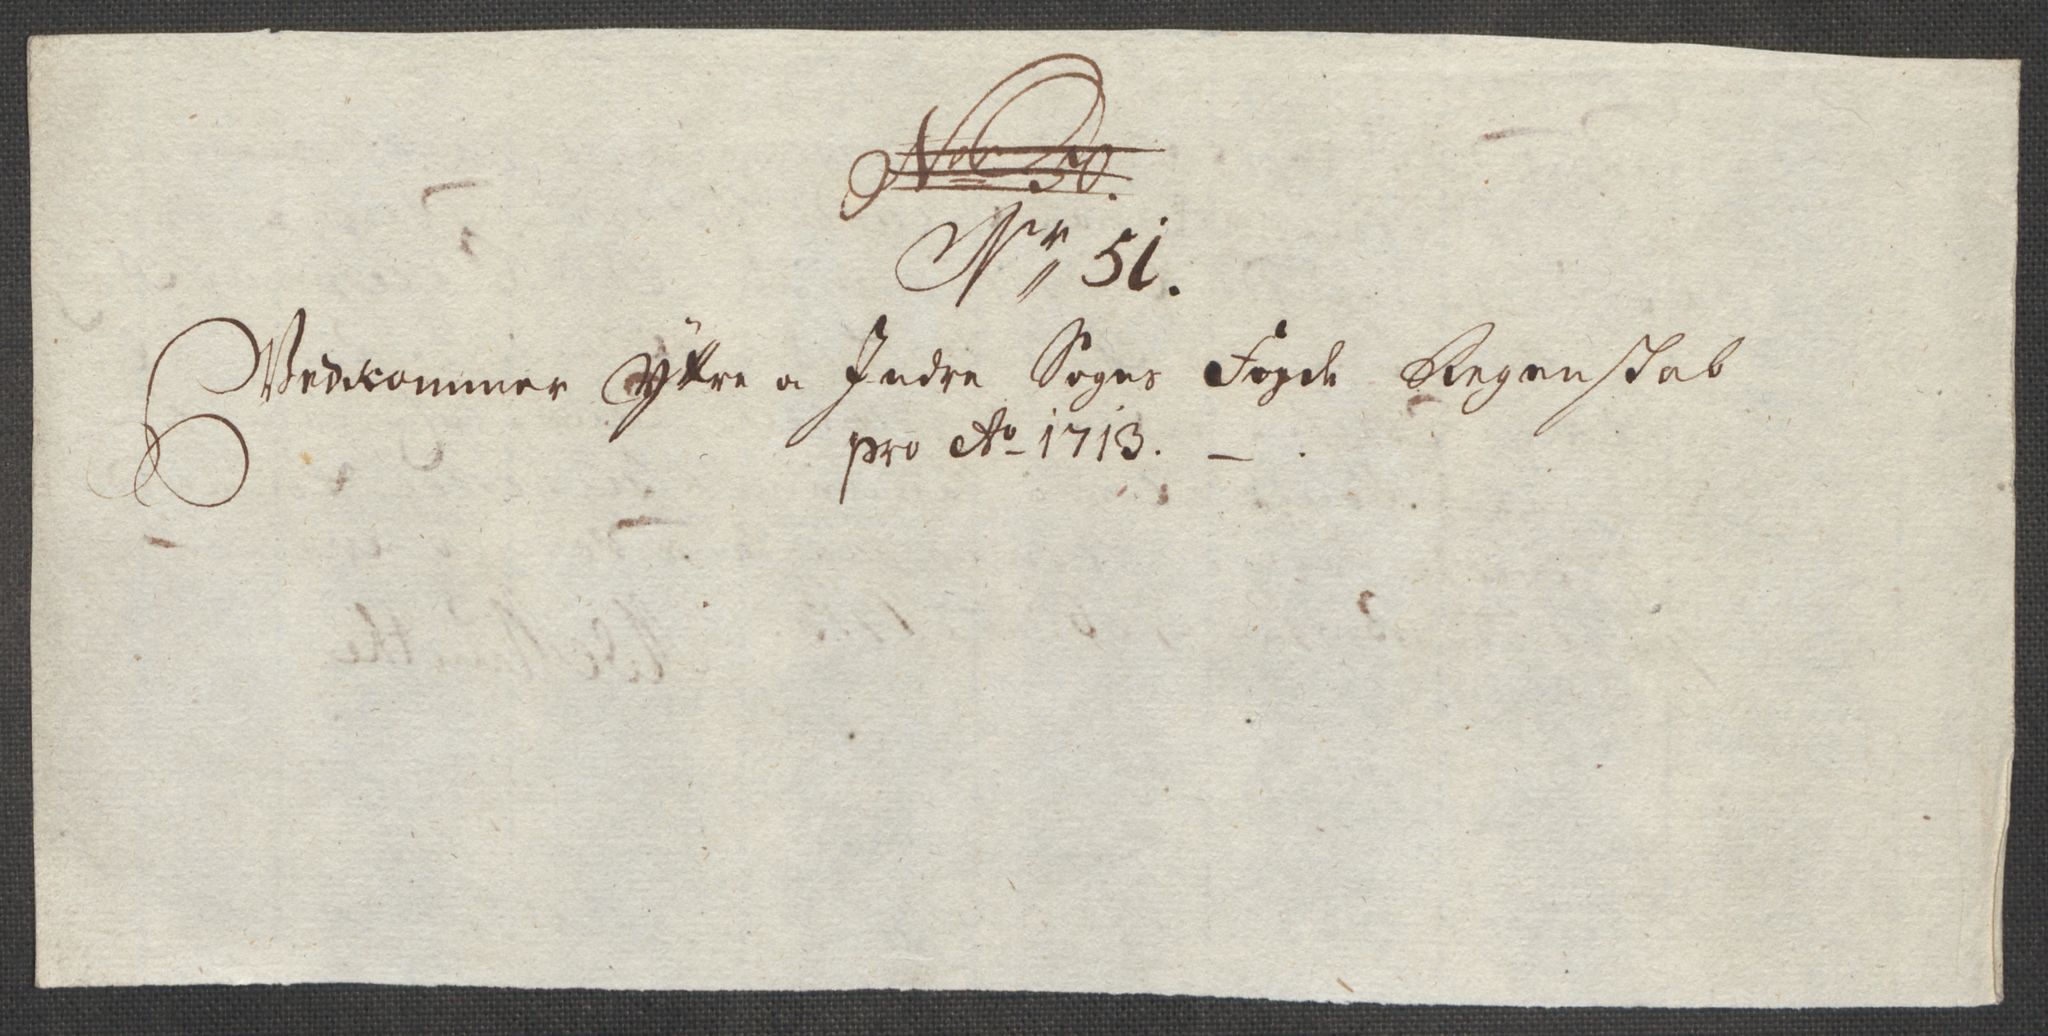 No 50.
Nr 51.
Vedkommer Yttre a Indre Sogns Fogde Regenskab
pro Ao 1713.